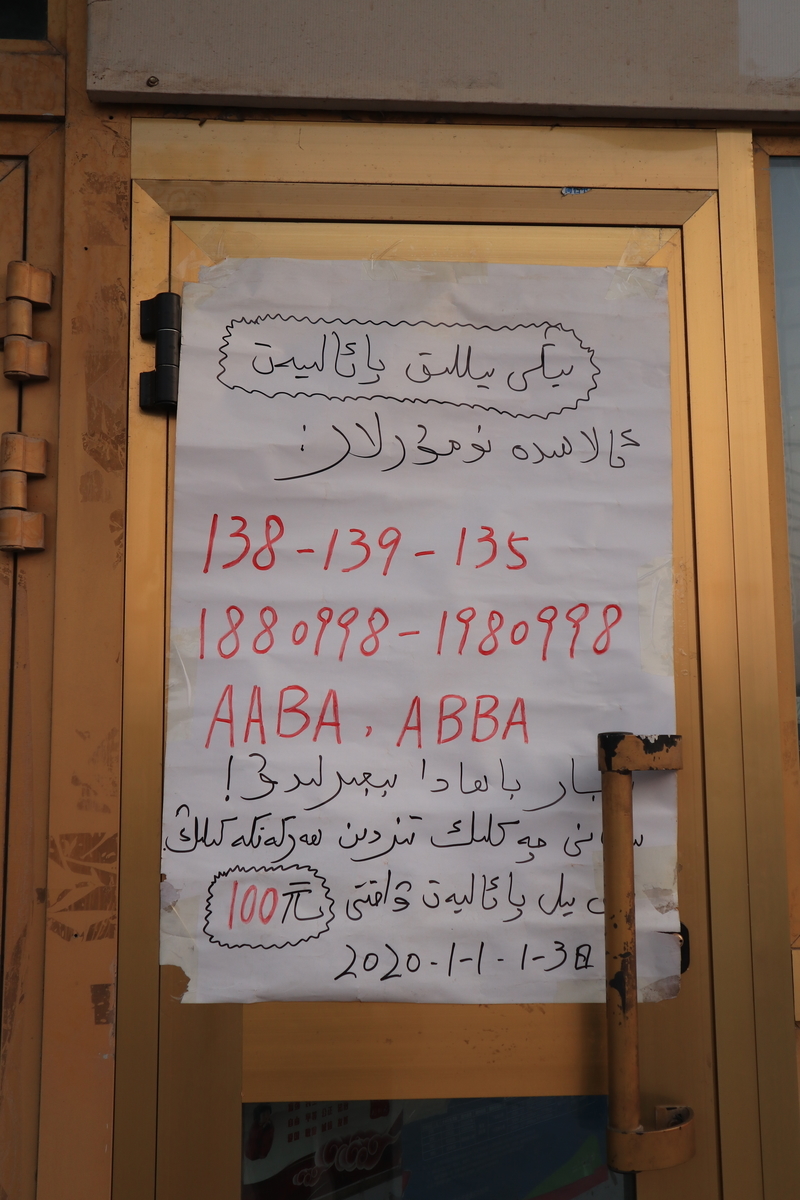 يېڭى يىللىق پائالىيەت
ئالاھىدە نومۇرلار:
138-139-135
1880998-1980998
AABA, ABBA
باھادا بېجىرلىدۇ!
چەكلىك تىزدىن ھەرىكەتكە كېلىڭ
يىل پائالىيەت ۋاقتى 100元
2020-1-1-1-3日